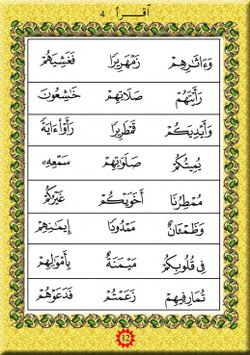 اقرأ 4
وَءَاثَارِهِمْ زَمْهَرِيرًا فَغَشِيَهُمْ
رَأَيْتَهُمْ صَلَاتِهِمْ خَاشِعُونَ
وَأَيْدِيكُمْ قَمْطَرِيرًا رَأَوْا۟ءَايَةً
يُمِيتُكُمْ صَلَوَاتِهِمْ سَمْعِهِۦ
مُمْطِرُنَا أَخَوَيْكُمْ غَيْرُكُمْ
مَمْدُودًا إِيمَٰنِهِمْ
فِى قُلُوبِكُمْ مَيْمَنَةٌ بِأَمْوَٰلِهِمْ
زَعَمْتُمْ فَدَعَوْهُمْ
12